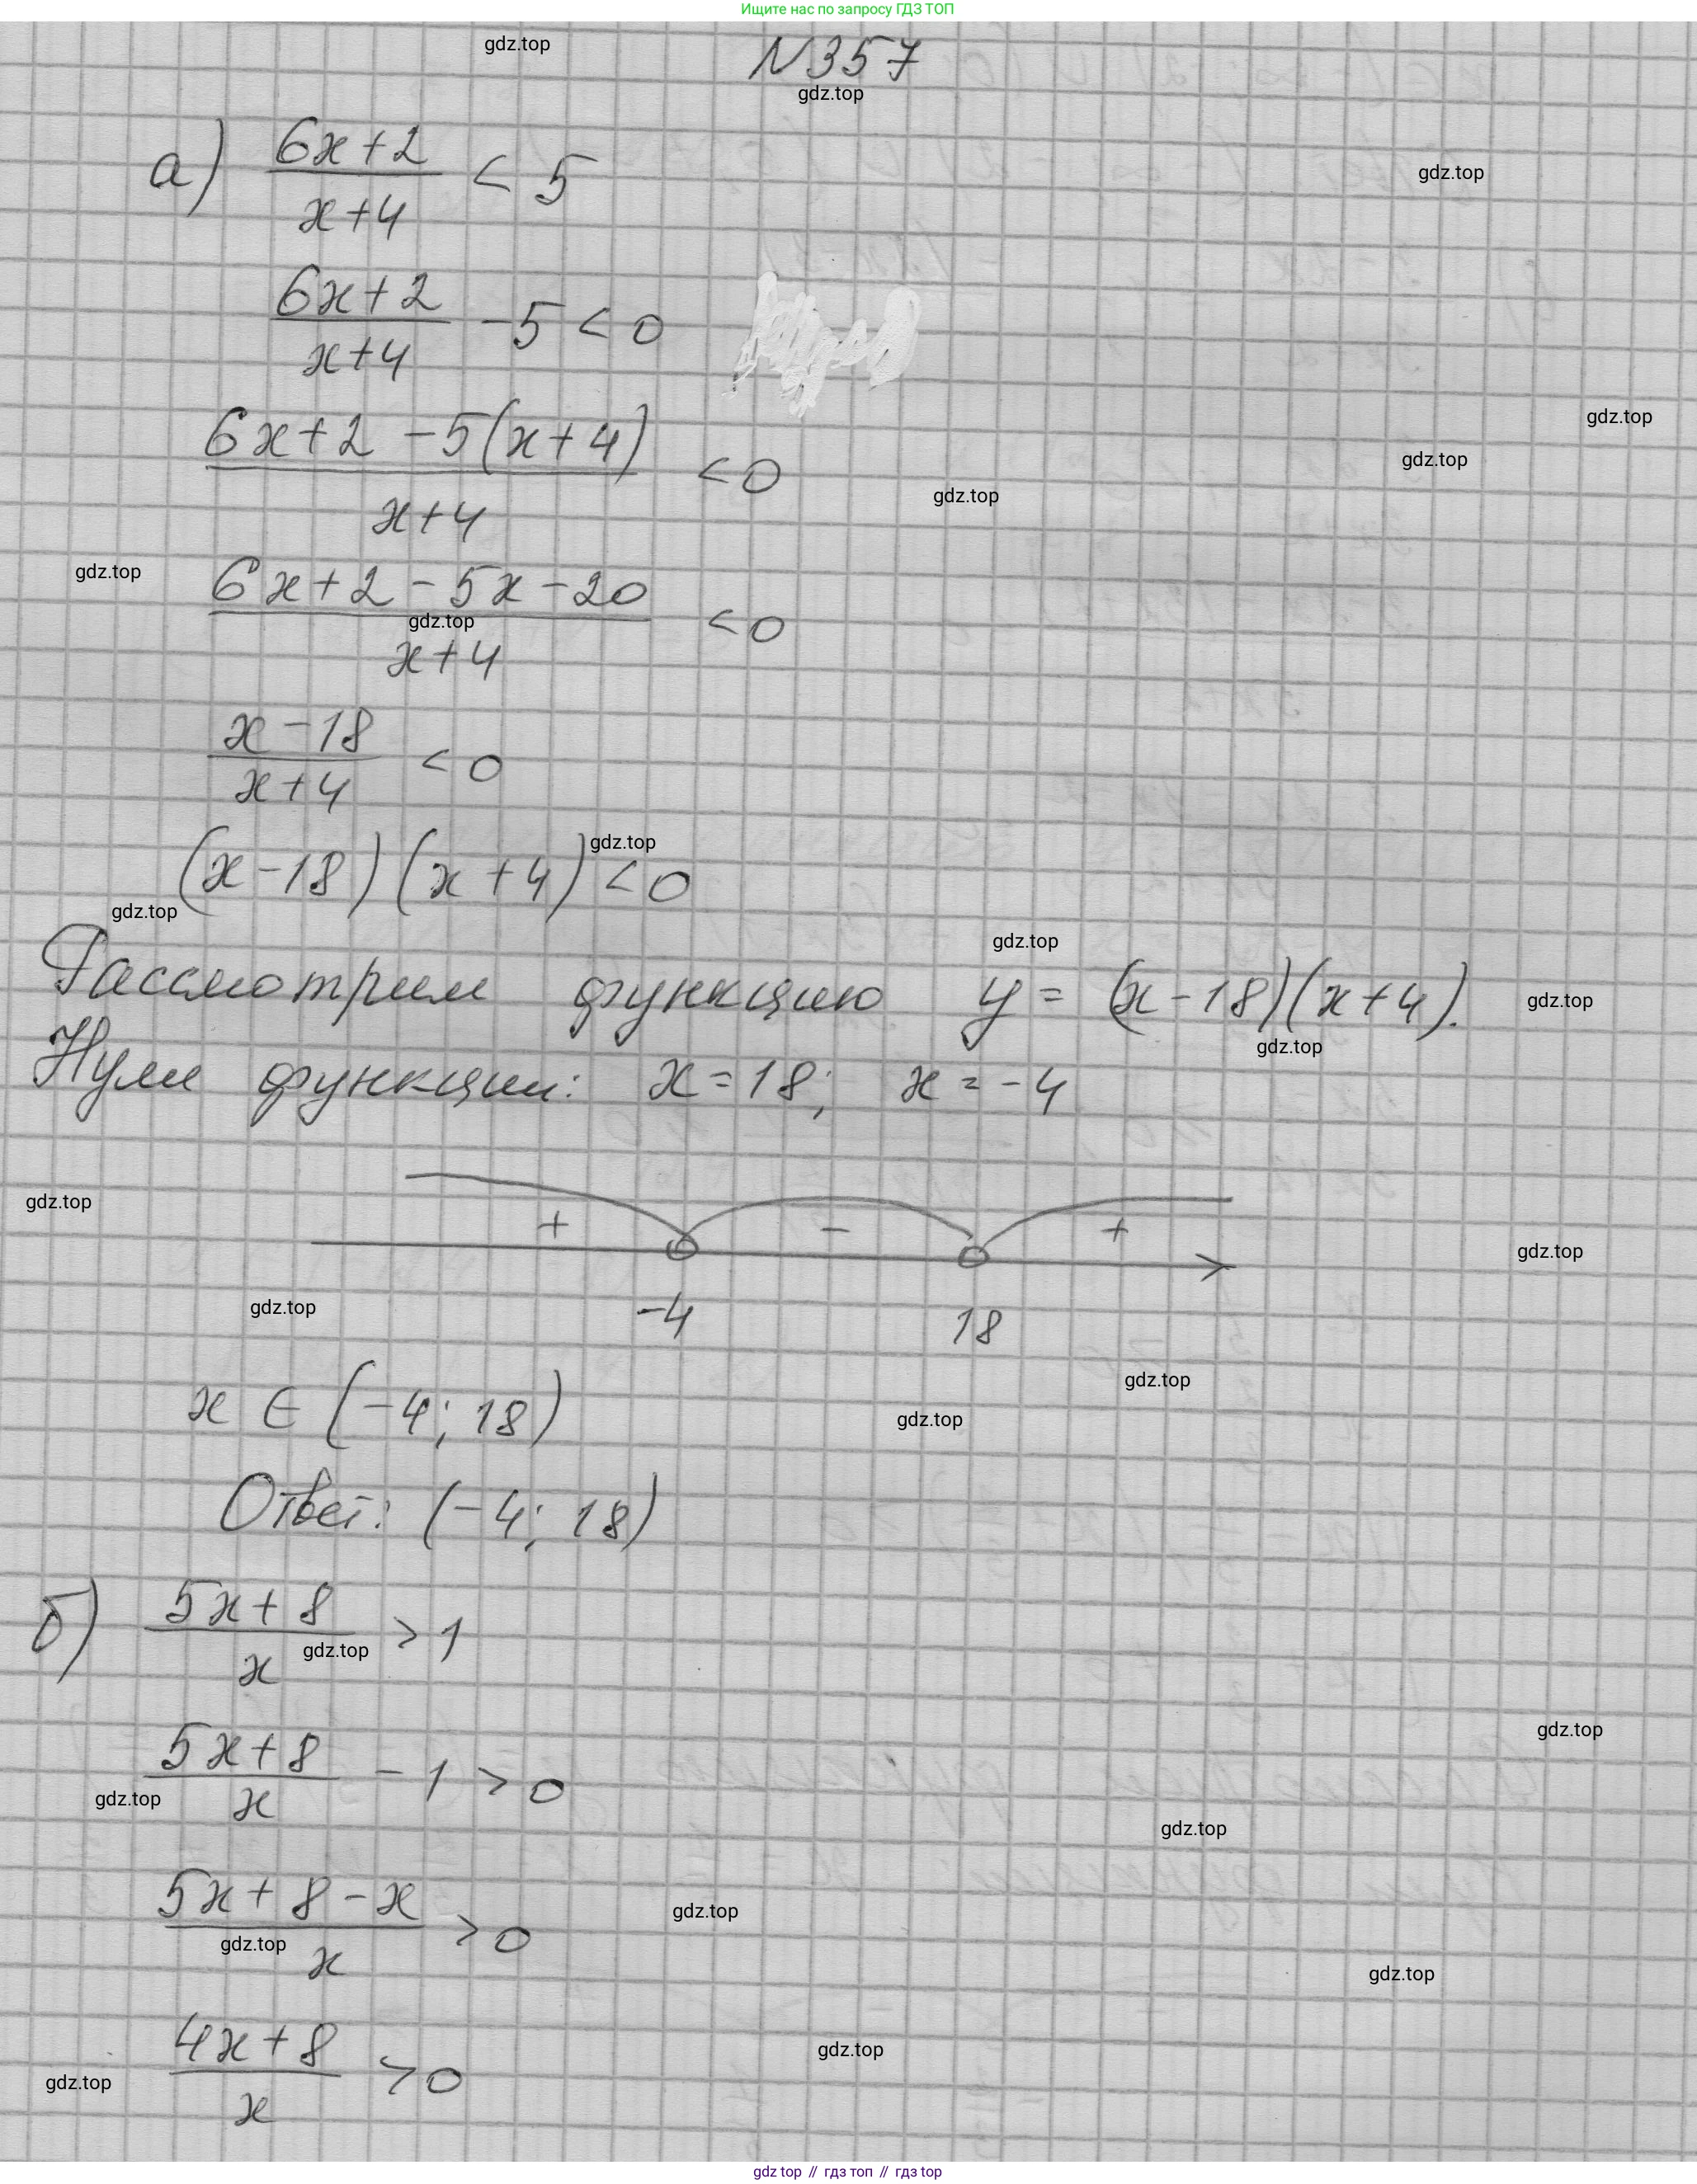 Ищите нас по запросу ГДЗ ТОП
gdz.top
N357
gdz.top
а) (6x+2)/(x+4) < 5
gdz.top
(6x+2)/(x+4) - 5 < 0
gdz.top
(6x+2-5(x+4))/(x+4) < 0
gdz.top
gdz.top
gdz.top
(6x+2-5x-20)/(x+4) < 0
gdz.top
(x-18)/(x+4) < 0
gdz.top
(x-18)(x+4) < 0
gdz.top
gdz.top
Рассмотрим функцию y = (x-18)(x+4).
gdz.top
gdz.top
Нули функции: x = 18; x = -4
gdz.top
+ - +
gdz.top
gdz.top
-4 18
gdz.top
x ∈ (-4; 18)
gdz.top
Ответ: (-4; 18)
б) (5x+8)/x > 1
gdz.top
gdz.top
(5x+8)/x - 1 > 0
gdz.top
gdz.top
(5x+8-x)/x > 0
gdz.top
gdz.top
gdz.top
(4x+8)/x > 0
gdz.top
gdz.top
gdz top // гдз топ // гдз top